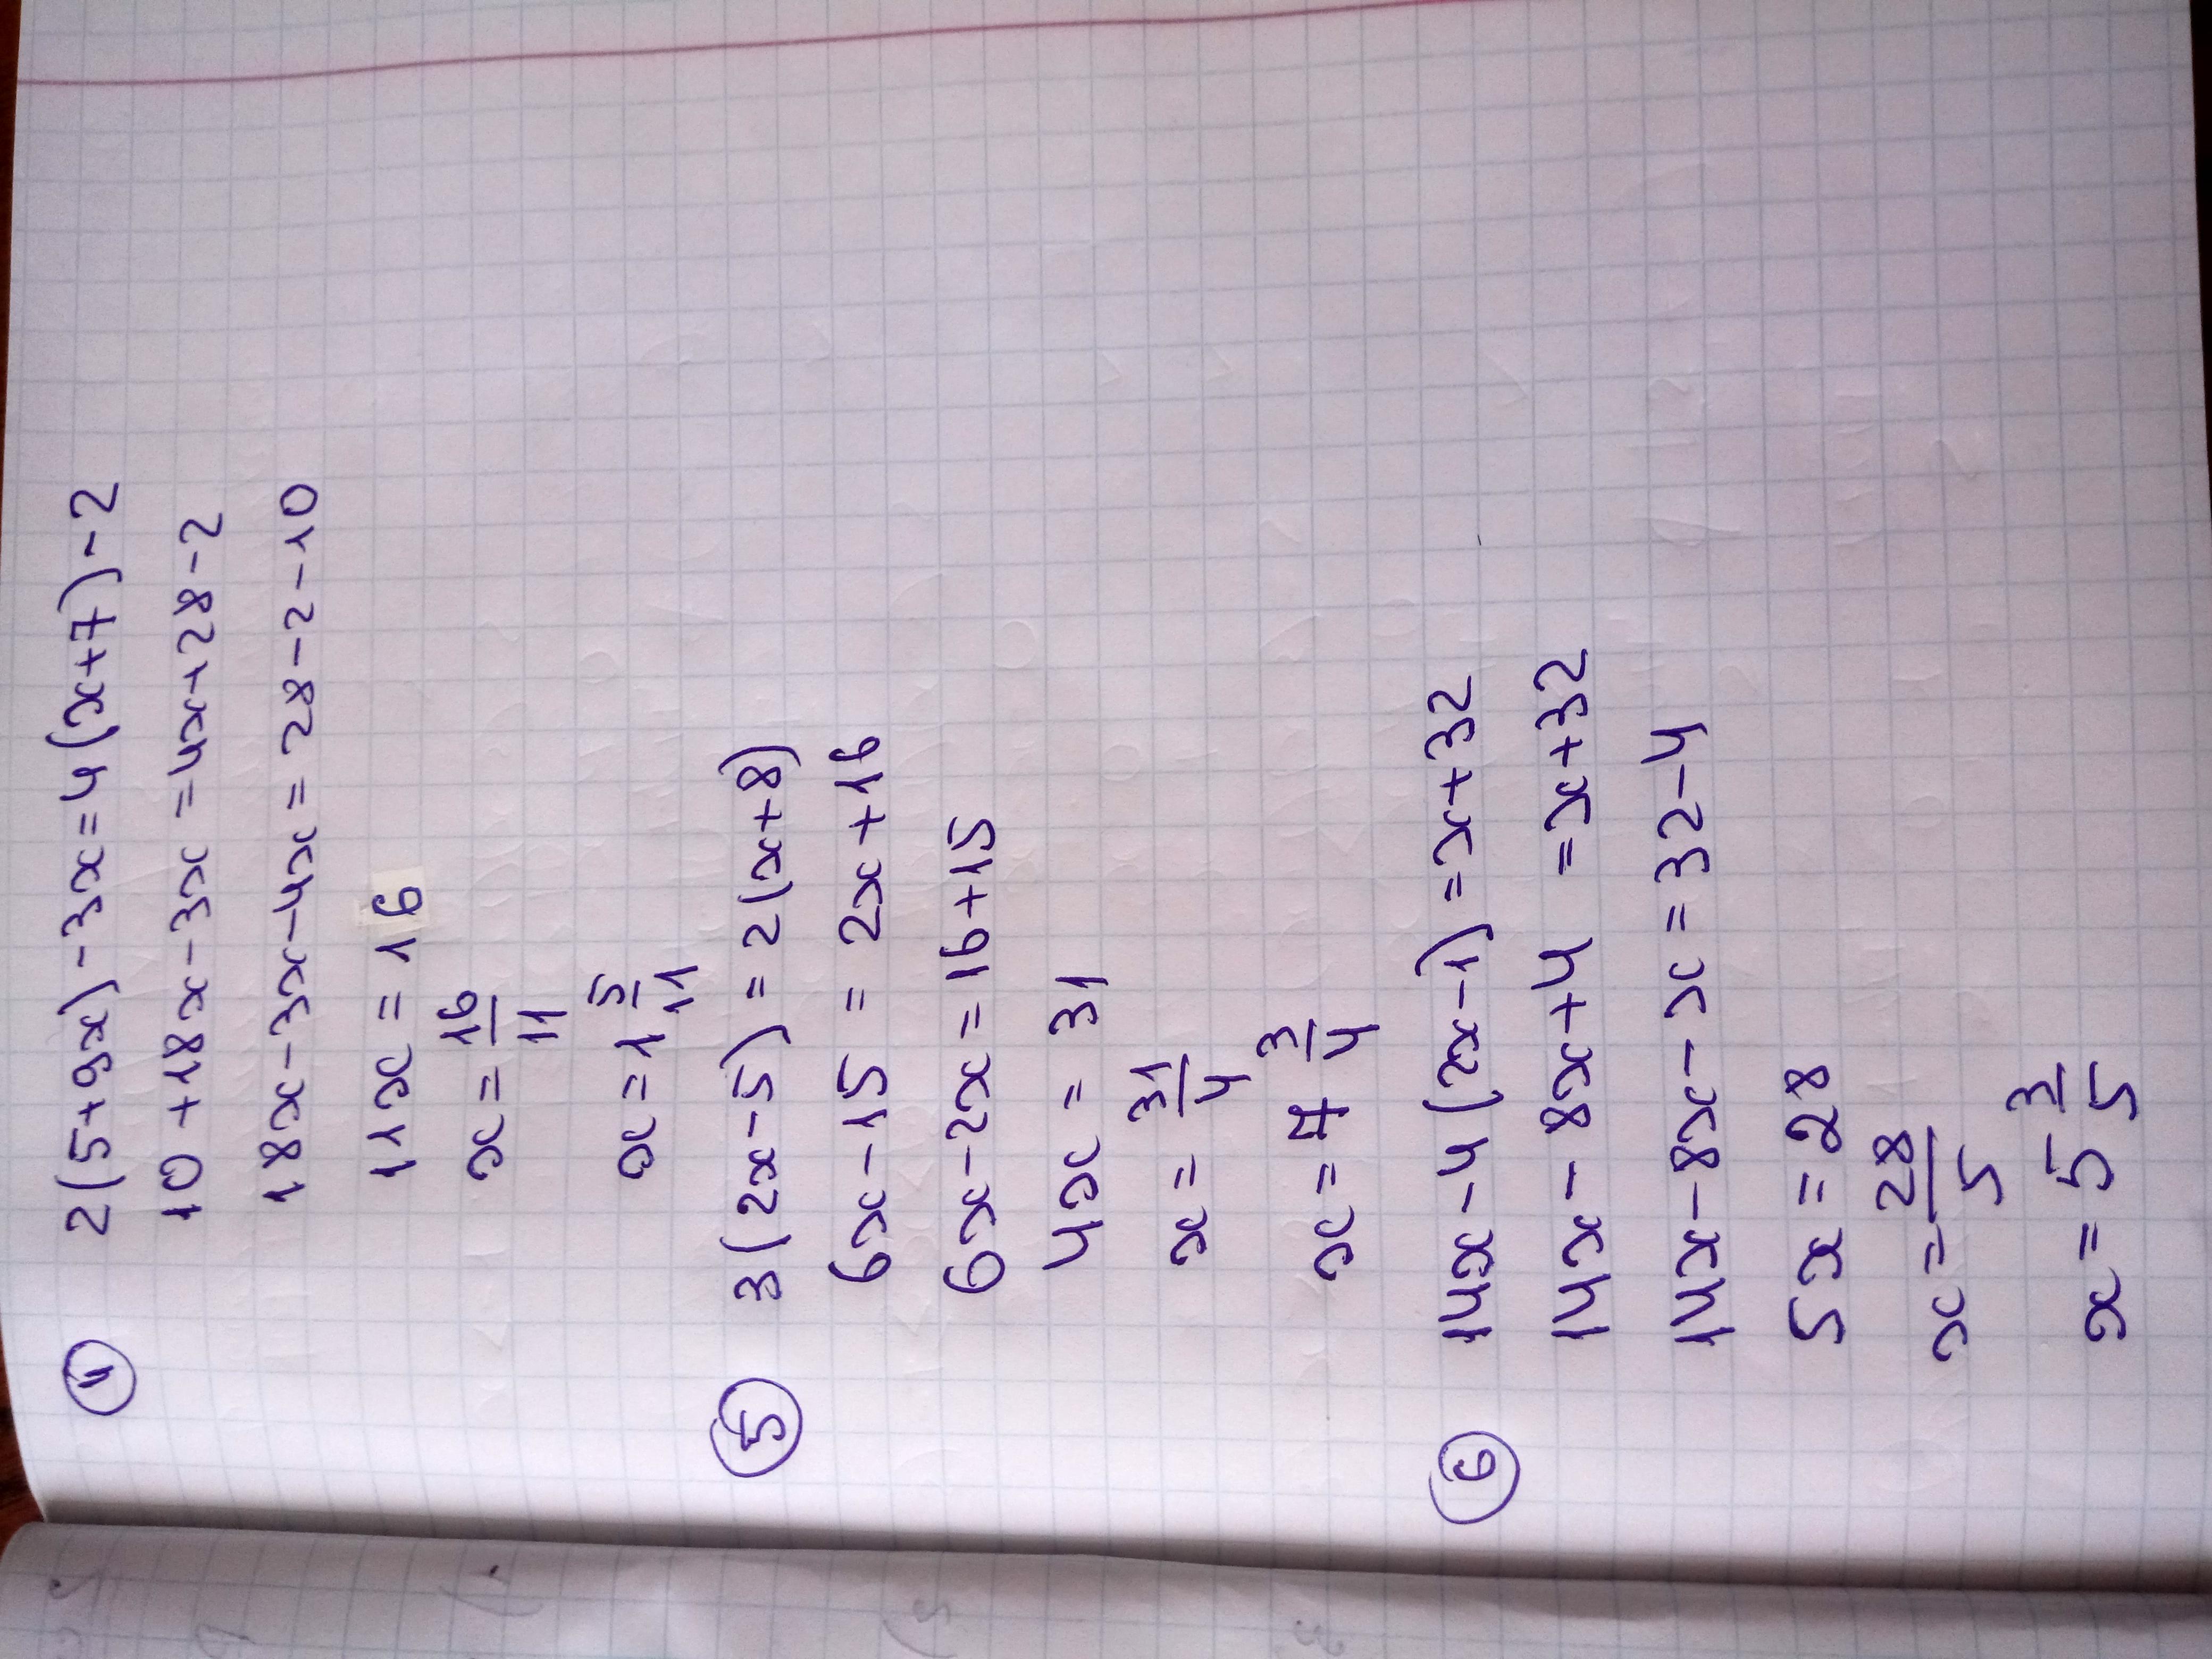 ④ 2(5+9x)-3x=4(x+7)-2
10+18x-3x=4x+28-2
18x-3x-4x=28-2-10
11x=16
x=16/11
x=1 5/11
⑤ 3(2x-5)=2(x+8)
6x-15=2x+16
6x-2x=16+15
4x=31
x=31/4
x=7 3/4
⑥ 14x-4(2x-1)=x+32
14x-8x+4=x+32
14x-8x-x=32-4
5x=28
x=28/5
x=5 3/5